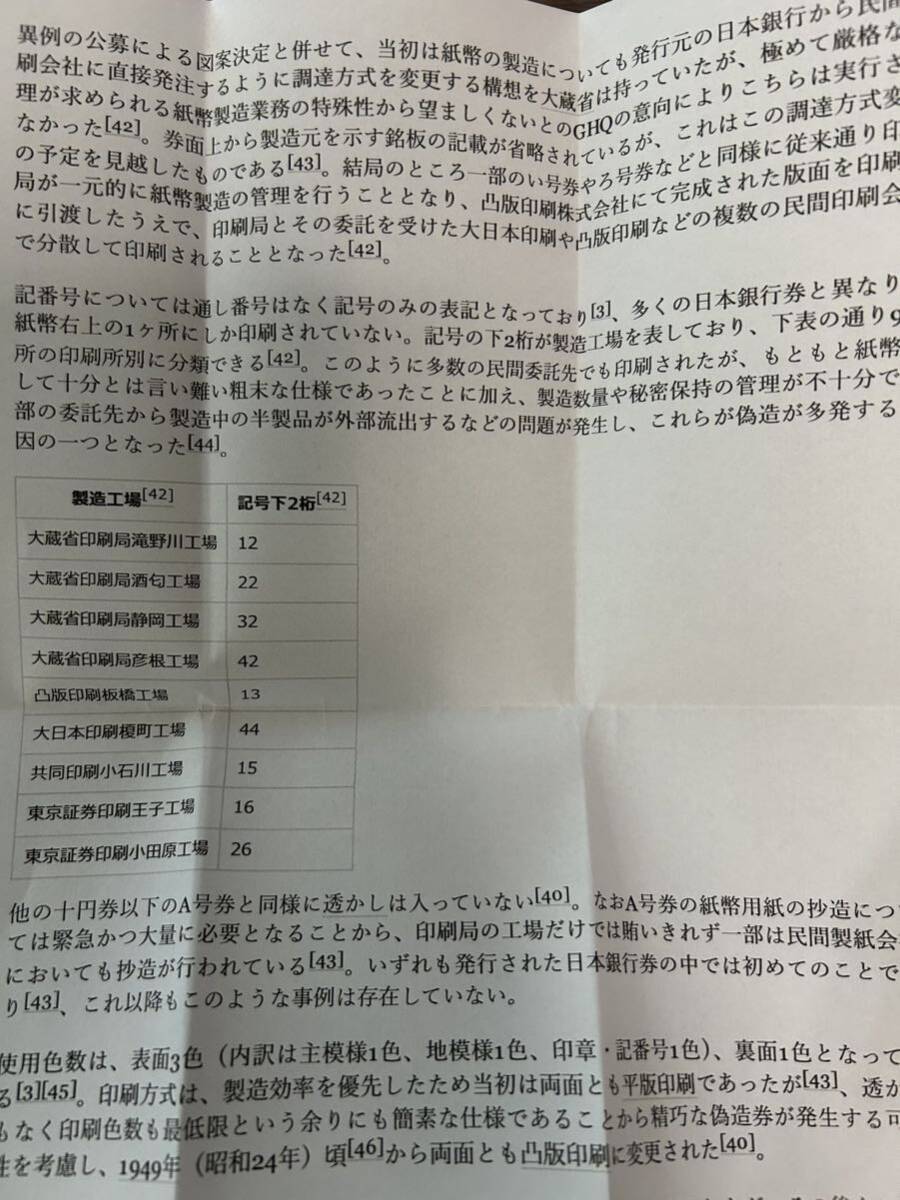 異例の公募による図案決定と併せて、当初は紙幣の製造についても発行元の日本銀行から民間
刷会社に直接発注するように調達方式を変更する構想を大蔵省は持っていたが、極めて厳格な
理が求められる紙幣製造業務の特殊性から望ましくないとのGHQの意向によりこちらは実行さ
なかった[42]。券面上から製造元を示す銘板の記載が省略されているが、これはこの調達方式変
の予定を見越したものである[43]。結局のところ一部のい号券やろ号券などと同様に従来通り印
局が一元的に紙幣製造の管理を行うこととなり、凸版印刷株式会社にて完成された版面を印刷
に引渡したうえで、印刷局とその委託を受けた大日本印刷や凸版印刷などの複数の民間印刷会
で分散して印刷されることとなった[42]。
記番号については通し番号はなく記号のみの表記となっており[3]、多くの日本銀行券と異なり
紙幣右上の1ヶ所にしか印刷されていない。記号の下2桁が製造工場を表しており、下表の通り9
所の印刷所別に分類できる[42]。このように多数の民間委託先でも印刷されたが、もともと紙幣
して十分とは言い難い粗末な仕様であったことに加え、製造数量や秘密保持の管理が不十分で
部の委託先から製造中の半製品が外部流出するなどの問題が発生し、これらが偽造が多発する
因の一つとなった[44]。
製造工場[42] 記号下2桁[42]
大蔵省印刷局滝野川工場 12
大蔵省印刷局酒匂工場 22
大蔵省印刷局静岡工場 32
大蔵省印刷局彦根工場 42
凸版印刷板橋工場 13
大日本印刷榎町工場 44
共同印刷小石川工場 15
東京証券印刷王子工場 16
東京証券印刷小田原工場 26
他の十円券以下のA号券と同様に透かしは入っていない[40]。なおA号券の紙幣用紙の抄造につ
ては緊急かつ大量に必要となることから、印刷局の工場だけでは賄いきれず一部は民間製紙会
においても抄造が行われている[43]。いずれも発行された日本銀行券の中では初めてのことで
り[43]、これ以降もこのような事例は存在していない。
使用色数は、表面3色（内訳は主模様1色、地模様1色、印章・記番号1色）、裏面1色となって
る[3][45]。印刷方式は、製造効率を優先したため当初は両面とも平版印刷であったが[43]、透か
もなく印刷色数も最低限という余りにも簡素な仕様であることから精巧な偽造券が発生する可
性を考慮し、1949年（昭和24年）頃[46]から両面とも凸版印刷に変更された[40]。